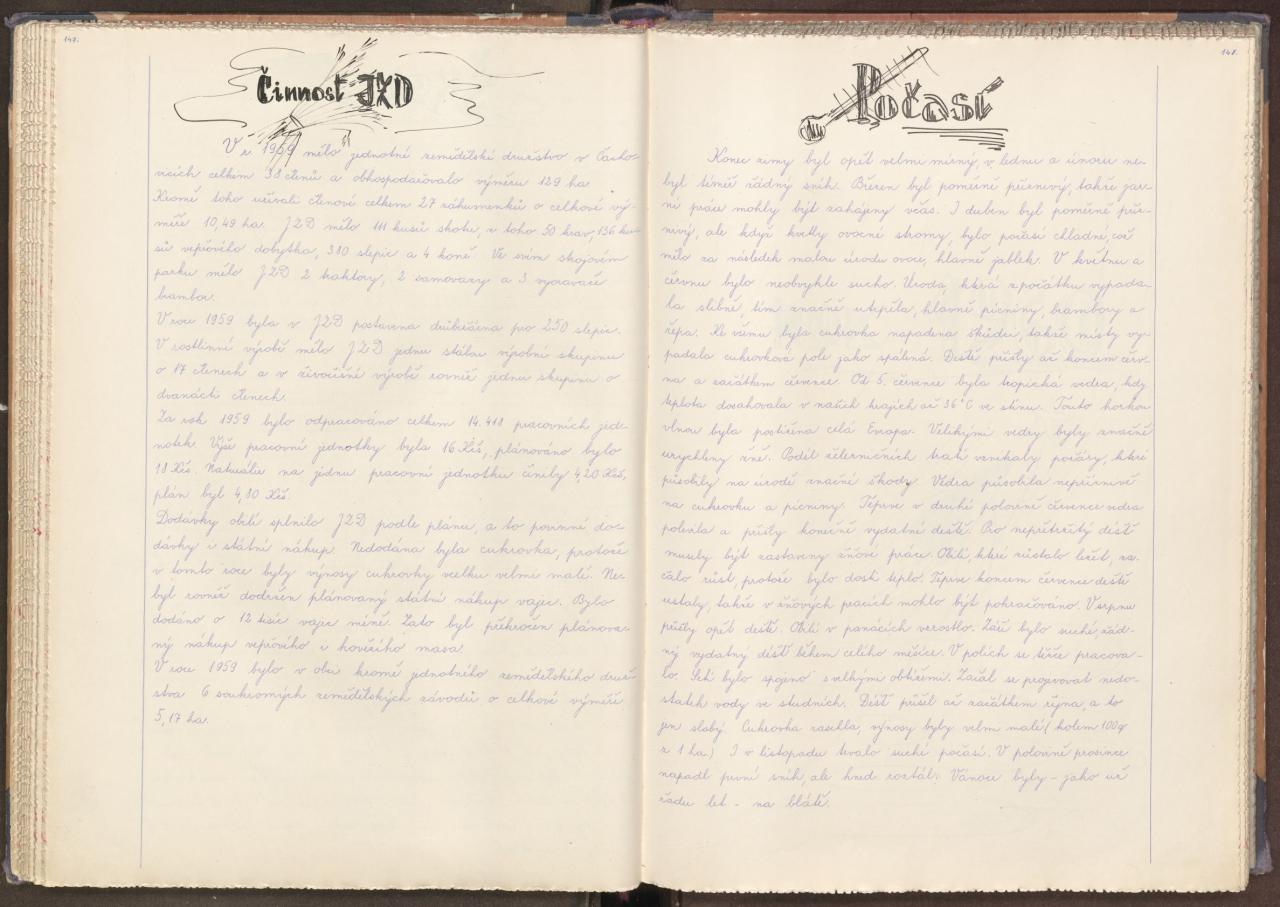 147.
Činnost JZD
V r. 1959 mělo jednotné zemědělské družstvo v Částo-
vicích celkem 38 členů a obhospodařovalo výměru 129 ha.
Kromě toho užívali členové celkem 27 záhumenků o celkové vý-
měře 10,49 ha. JZD mělo 111 kusů skotu, z toho 50 krav, 136 ku-
sů vepřového dobytka, 380 slepic a 4 koně. Ve svém strojovém
parku mělo JZD 2 traktory, 2 samovazy a 3 vyorávače
brambor.
V roce 1959 byla v JZD postavena drůbežárna pro 250 slepic.
V rostlinné výrobě mělo JZD jednu stálou výrobní skupinu
o 17 členech a v živočišné výrobě rovněž jednu skupinu o
dvanácti členech.
Za rok 1959 bylo odpracováno celkem 14.418 pracovních jed-
notek. Výše pracovní jednotky byla 16 Kčs, plánováno bylo
18 Kčs. Naturálie na jednu pracovní jednotku činily 4,20 Kčs,
plán byl 4,80 Kčs.
Dodávky obilí splnilo JZD podle plánu, a to povinné do-
dávky i státní nákup. Nedodána byla cukrovka, protože
v tomto roce byly výnosy cukrovky vcelku velmi malé. Ne-
byl rovněž dodržen plánovaný státní nákup vajec. Bylo
dodáno o 12 tisíc vajec méně. Zato byl překročen plánova-
ný nákup vepřového i hovězího masa.
V roce 1959 bylo v obci kromě jednotného zemědělského druž-
stva 6 soukromých zemědělských závodů o celkové výměře
5,17 ha.
148.
Počasí
Konec zimy byl opět velmi mírný, v lednu a únoru ne-
byl téměř žádný sníh. Březen byl poměrně příznivý, takže jar-
ní práce mohly být zahájeny včas. I duben byl poměrně příz-
nivý, ale když kvetly ovocné stromy, bylo počasí chladné, což
mělo za následek malou úrodu ovoce, hlavně jablek. V květnu a
červnu bylo neobvykle sucho. Úroda, která zpočátku vypada-
la slibně, tím značně utrpěla, hlavně pícniny, brambory a
řepa. Ke všemu byla cukrovka napadena škůdci, takže místy vy-
padala cukrovková pole jako spálená. Deště přišly až koncem červ-
na a začátkem července. Od 5. července byla tropická vedra, kdy
teplota dosahovala v našich krajích až 36°C ve stínu. Touto horkou
vlnou byla postižena celá Evropa. Velikými vedry byly značně
urychleny žně. Podél železničních tratí vznikaly požáry, které
působily na úrodě značné škody. Vedra působila nepříznivě
na cukrovku a pícniny. Teprve v druhé polovině července vedra
polevila a přišly konečně vydatné deště. Pro nepřetržitý déšť
musely být zastaveny žňové práce. Obilí, které zůstalo ležet, za-
čalo růst, protože bylo dosti teplo. Teprve koncem července deště
ustaly, takže v žňových pracích mohlo být pokračováno. V srpnu
přišly opět deště. Obilí v panácích vzrostlo. Září bylo suché, žád-
ný vydatný déšť během celého měsíce. V polích se těžce pracova-
lo. Setí bylo spojeno s velkými obtížemi. Začal se projevovat nedo-
statek vody ve studních. Déšť přišel až začátkem října, a to
jen slabý. Cukrovka zaschla, výnosy byly velmi malé (kolem 100 q
z 1 ha.) I v listopadu trvalo suché počasí. V polovině prosince
napadl první sníh, ale hned roztál. Vánoce byly - jako už
řadu let - na blátě.